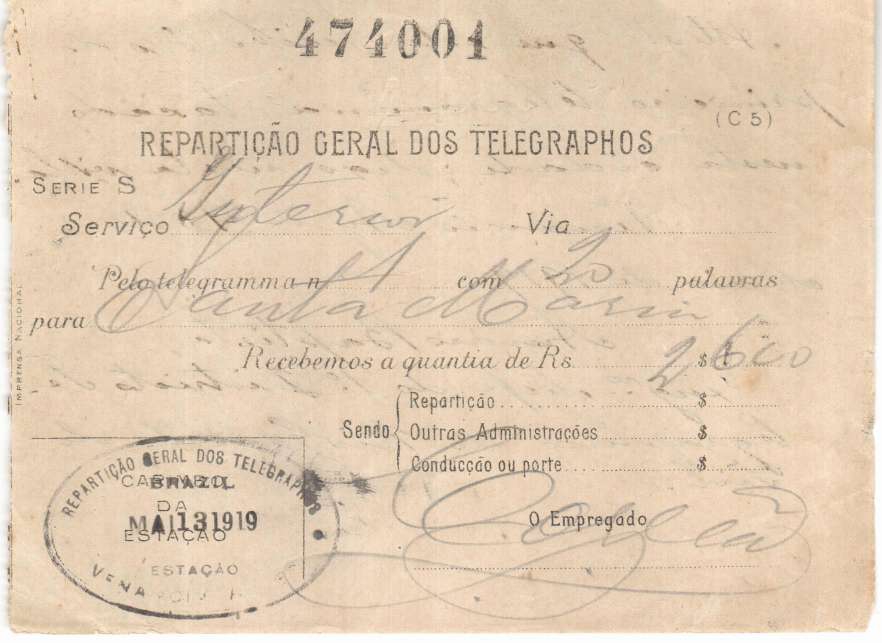 474001
(C 5)
REPARTIÇÃO GERAL DOS TELEGRAPHOS
SERIE S
Serviço Interior Via
Pelo telegramma n. 1 com 20 palavras
para Santa Maria
Recebemos a quantia de Rs. 2$600
Sendo
Repartição $
Outras Administrações $
Conducção ou porte $
O Empregado
IMPRENSA NACIONAL
CARIMBO
DA
ESTAÇÃO
REPARTIÇÃO GERAL DOS TELEGRAPHOS
BRAZIL
MAI 13 1919
ESTAÇÃO